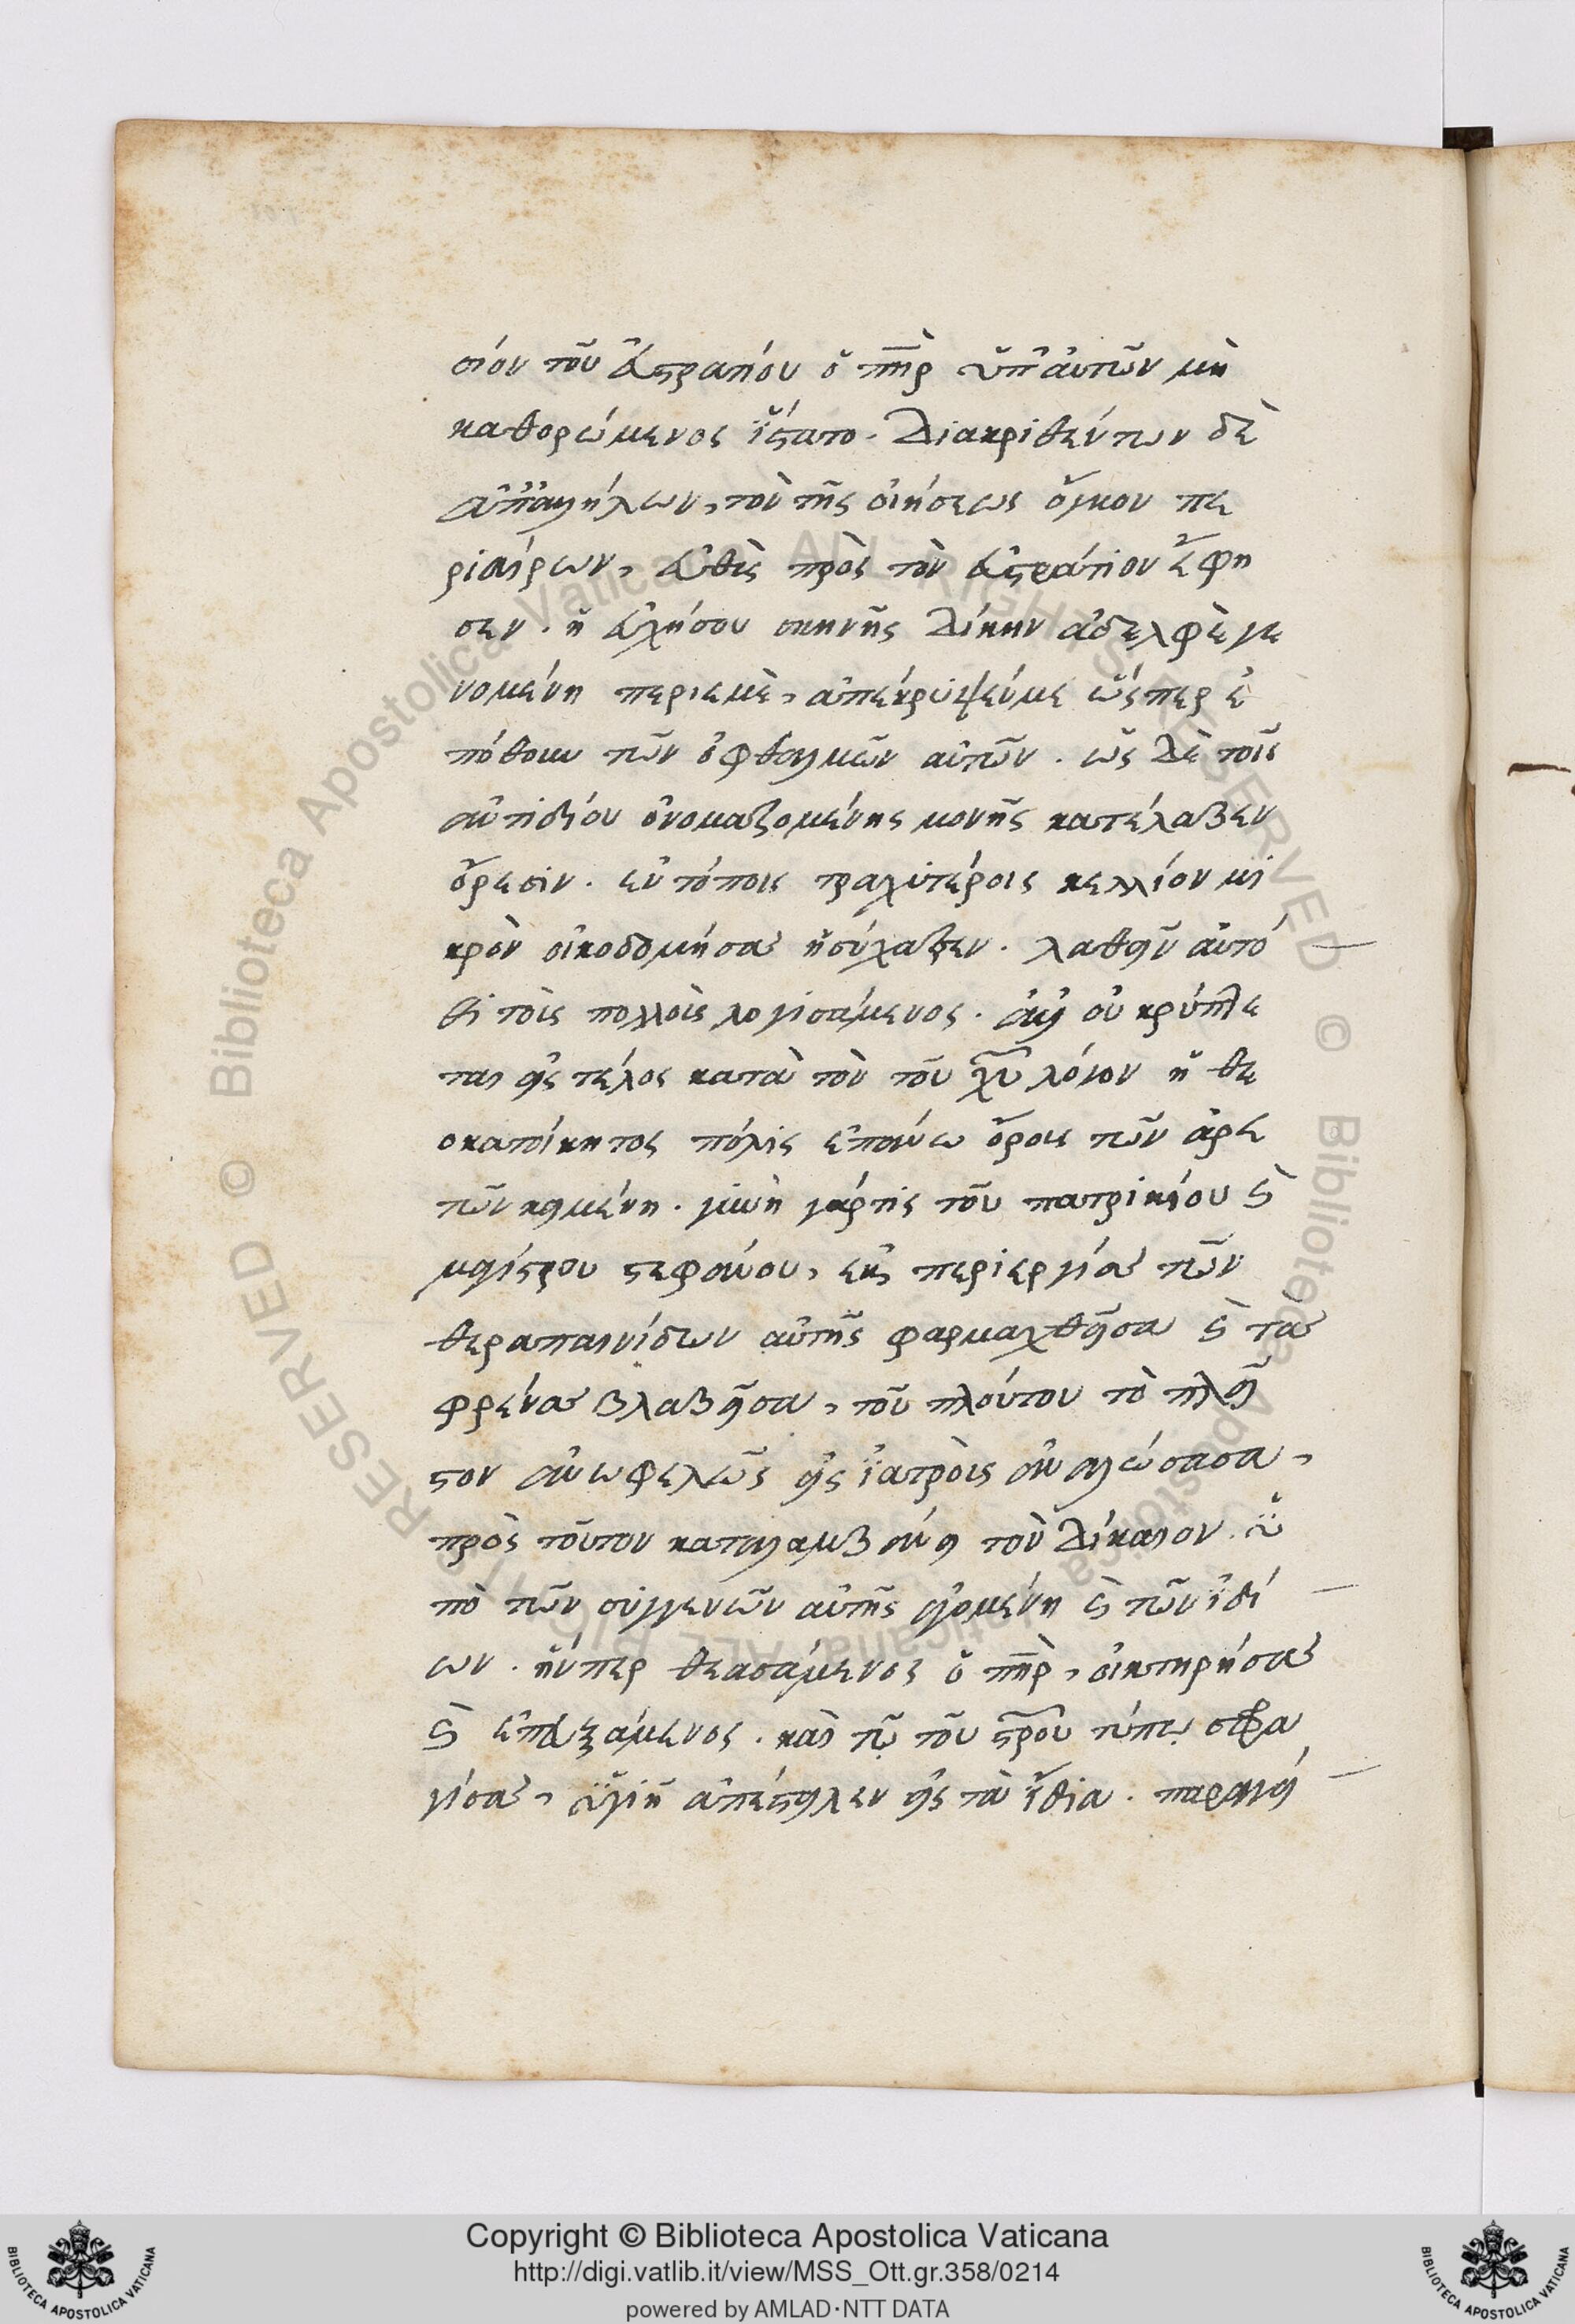 σίον τοῦ ἀστρατίου ὁ πη̅ρ ὑπ᾽ αὐτῶν μὴ
καθορώμενος ἵστατο. Διακριθέντων δὲ
ἀπαλλήλων, τὸν τῆς οἰήσεως ὄγκον πε
ριαίρων, αὖθις πρὸς τὸν ἀστράτιον ἔφη
σεν. ἡ εὐχήσου σκηνῆς δίκην ἀδελφὲ γε
νομένη περιεμὲ, ἀπέκρυψέν με ὥσπερ ἐ
πόθουν τῶν ὀφθαλμῶν αὐτῶν. ὡς δὲ τοῖς
ἀντιδίου ὀνομαζομένης μονῆς κατέλαβεν
ὄρεσιν. ἐν τόποις τραχυτέροις κελλίον μι
κρὸν οἰκοδομήσας ἡσύχαζεν. λαθεῖν αὐτό
θι τοῖς πολλοῖς λογισάμενος. ἀλλ᾽ οὐ κρύπτε
ται εἰς τέλος κατὰ τὸν τοῦ χυ̅ λόγον ἡ θε
οκατοίκητος πόλις ἐπάνω ὄρους τῶν ἀρε
τῶν κειμένη. γυνὴ γάρ τις τοῦ πατρικίου ϛ
μαγίστρου στεφάνου, ἐκ περιεργίας τῶν
θεραπαινίδων αὐτῆς φαρμαχθεῖσα ϛ τὰς
φρένας βλαβεῖσα, τοῦ πλούτου τὸ πλεῖ
στον ἀνωφελῶς εἰς ἰατροὺς ἀναλώσασα,
πρὸς τοῦτον καταλαμβάνει τὸν δίκαιον. ὑ
πὸ τῶν συγγενῶν αὐτῆς ἀγομένη ϛ τῶν ἰδί
ων. ἥνπερ θεασάμενος ὁ πη̅ρ, οἰκτειρήσας
ϛ ἐπευξάμενος. καὶ τῷ τοῦ στρου̅ τύπῳ σφρα
γίσας, ὑγιῆ ἀπέστειλεν εἰς τὰ ἴδια. παραγγεί
Copyright © Biblioteca Apostolica Vaticana
http://digi.vatlib.it/view/MSS_Ott.gr.358/0214
powered by AMLAD·NTT DATA